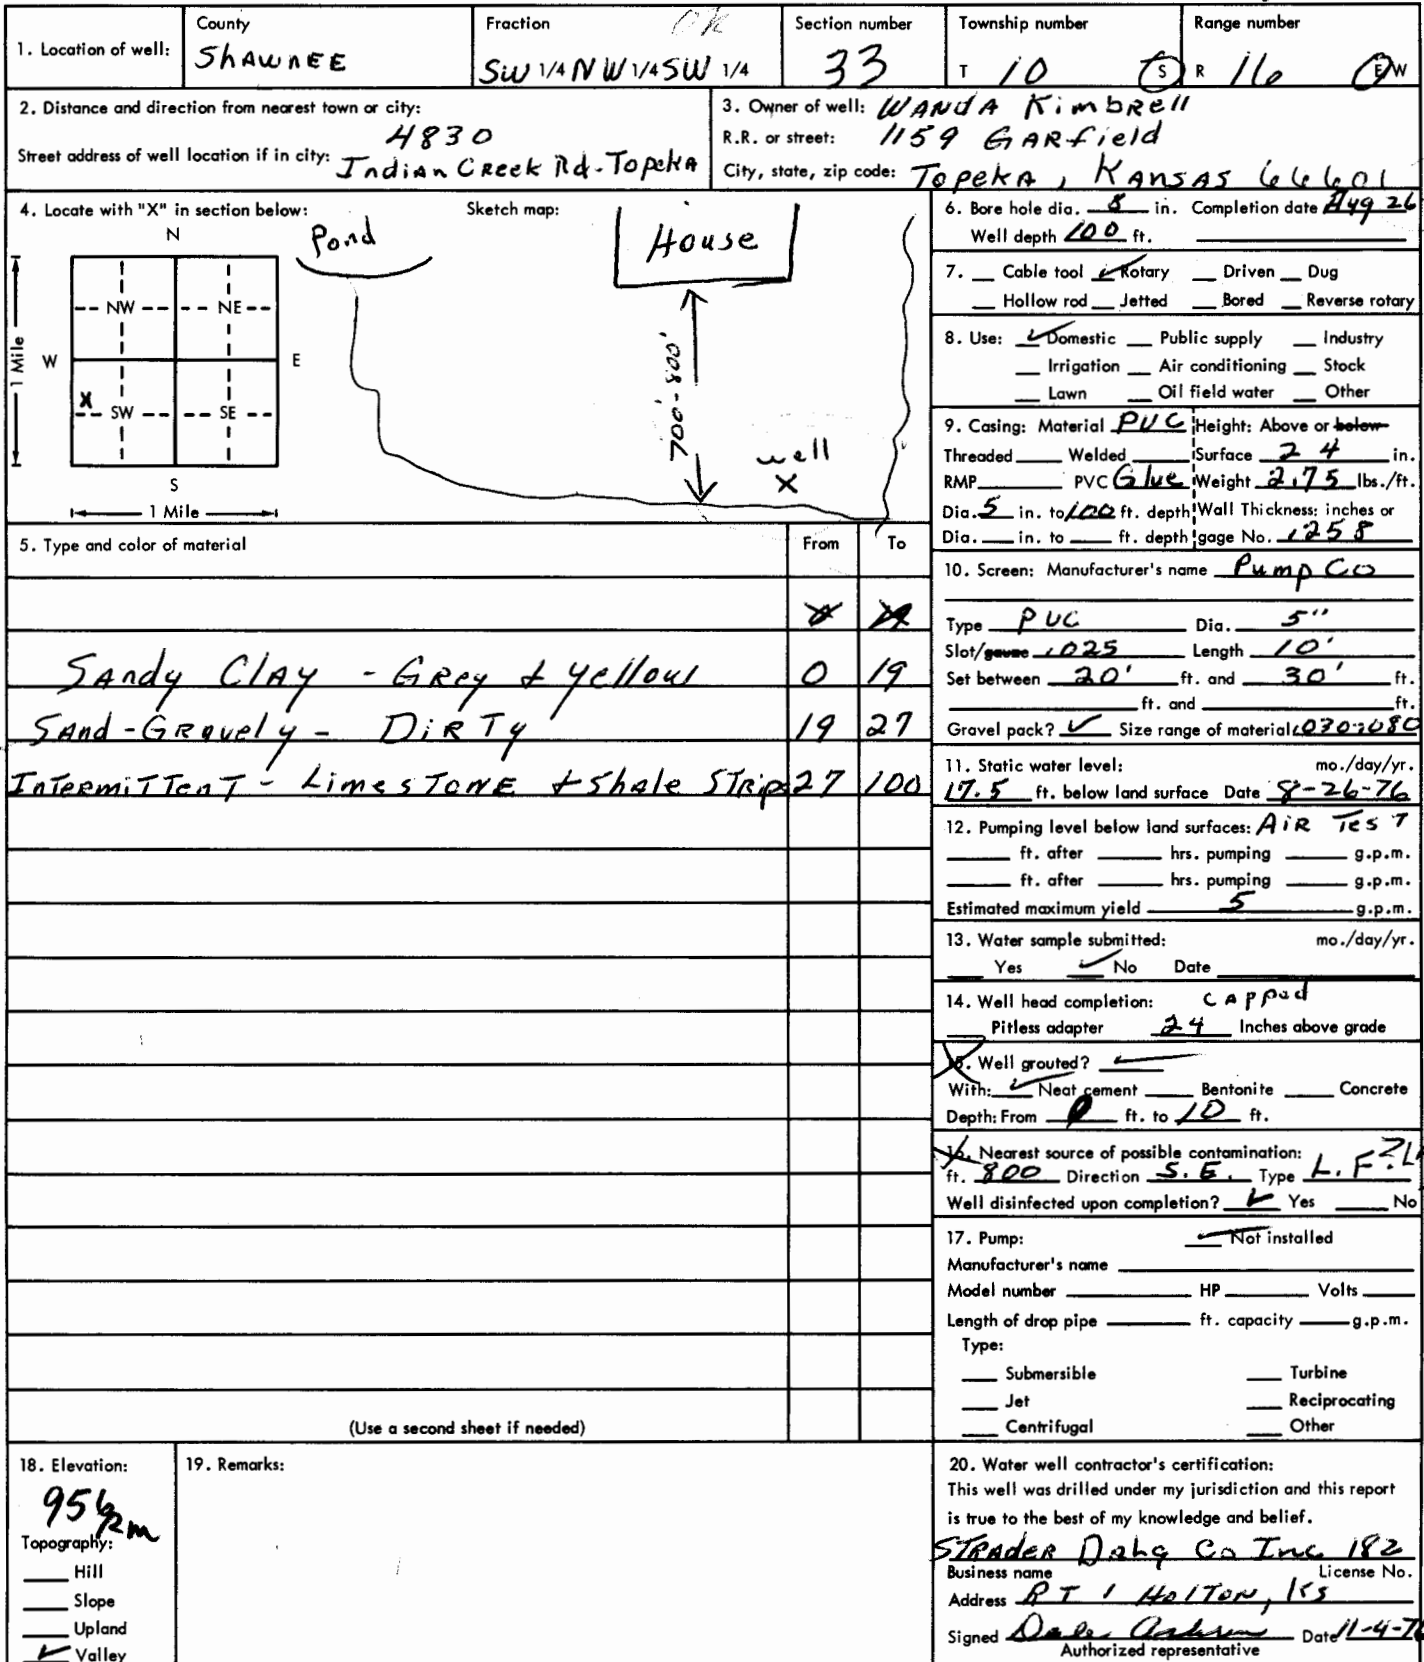 OK
1. Location of well: County SHAWNEE Fraction SW 1/4 NW 1/4 SW 1/4 Section number 33 Township number T 10 S Range number R 16 E W
2. Distance and direction from nearest town or city:
Street address of well location if in city: 4830 Indian Creek Rd-Topeka
3. Owner of well: WANDA KimbRell
R.R. or street: 1159 GARfield
City, state, zip code: TopekA, KANSAS 66601
4. Locate with "X" in section below: Sketch map:
N
NW NE
W E
X
SW SE
S
1 Mile
1 Mile
Pond
House
700'-800'
well
X
5. Type and color of material From To
Sandy Clay - Grey + yellow 0 19
Sand-Gravely - DiRTy 19 27
InTermiTTenT - LimesTONE + Shale STrips 27 100
(Use a second sheet if needed)
6. Bore hole dia. 8 in. Completion date Aug 26
Well depth 100 ft.
7. Cable tool ✓ Rotary Driven Dug
Hollow rod Jetted Bored Reverse rotary
8. Use: ✓ Domestic Public supply Industry
Irrigation Air conditioning Stock
Lawn Oil field water Other
9. Casing: Material PVC Height: Above or below
Threaded Welded Surface 24 in.
RMP PVC Glue Weight 2.75 lbs./ft.
Dia. 5 in. to 100 ft. depth Wall Thickness: inches or
Dia. in. to ft. depth gage No. .258
10. Screen: Manufacturer's name Pump Co
Type PVC Dia. 5"
Slot/gauze .025 Length 10'
Set between 20' ft. and 30' ft.
ft. and ft.
Gravel pack? ✓ Size range of material .030-.080
11. Static water level: mo./day/yr.
17.5 ft. below land surface Date 8-26-76
12. Pumping level below land surfaces: AiR TesT
ft. after hrs. pumping g.p.m.
ft. after hrs. pumping g.p.m.
Estimated maximum yield 5 g.p.m.
13. Water sample submitted: mo./day/yr.
Yes ✓ No Date
14. Well head completion: CAppad
Pitless adapter 24 Inches above grade
15. Well grouted? ✓
With: ✓ Neat cement Bentonite Concrete
Depth: From 0 ft. to 10 ft.
16. Nearest source of possible contamination:
ft. 800 Direction S.E. Type L.F?
Well disinfected upon completion? ✓ Yes No
17. Pump: ✓ Not installed
Manufacturer's name
Model number HP Volts
Length of drop pipe ft. capacity g.p.m.
Type:
Submersible Turbine
Jet Reciprocating
Centrifugal Other
18. Elevation:
956
Topography:
Hill
Slope
Upland
✓ Valley
19. Remarks:
20. Water well contractor's certification:
This well was drilled under my jurisdiction and this report
is true to the best of my knowledge and belief.
STRADER Drlg Co Inc 182
Business name License No.
Address RT 1 HolTON, Ks
Signed Dale Date 11-4-76
Authorized representative